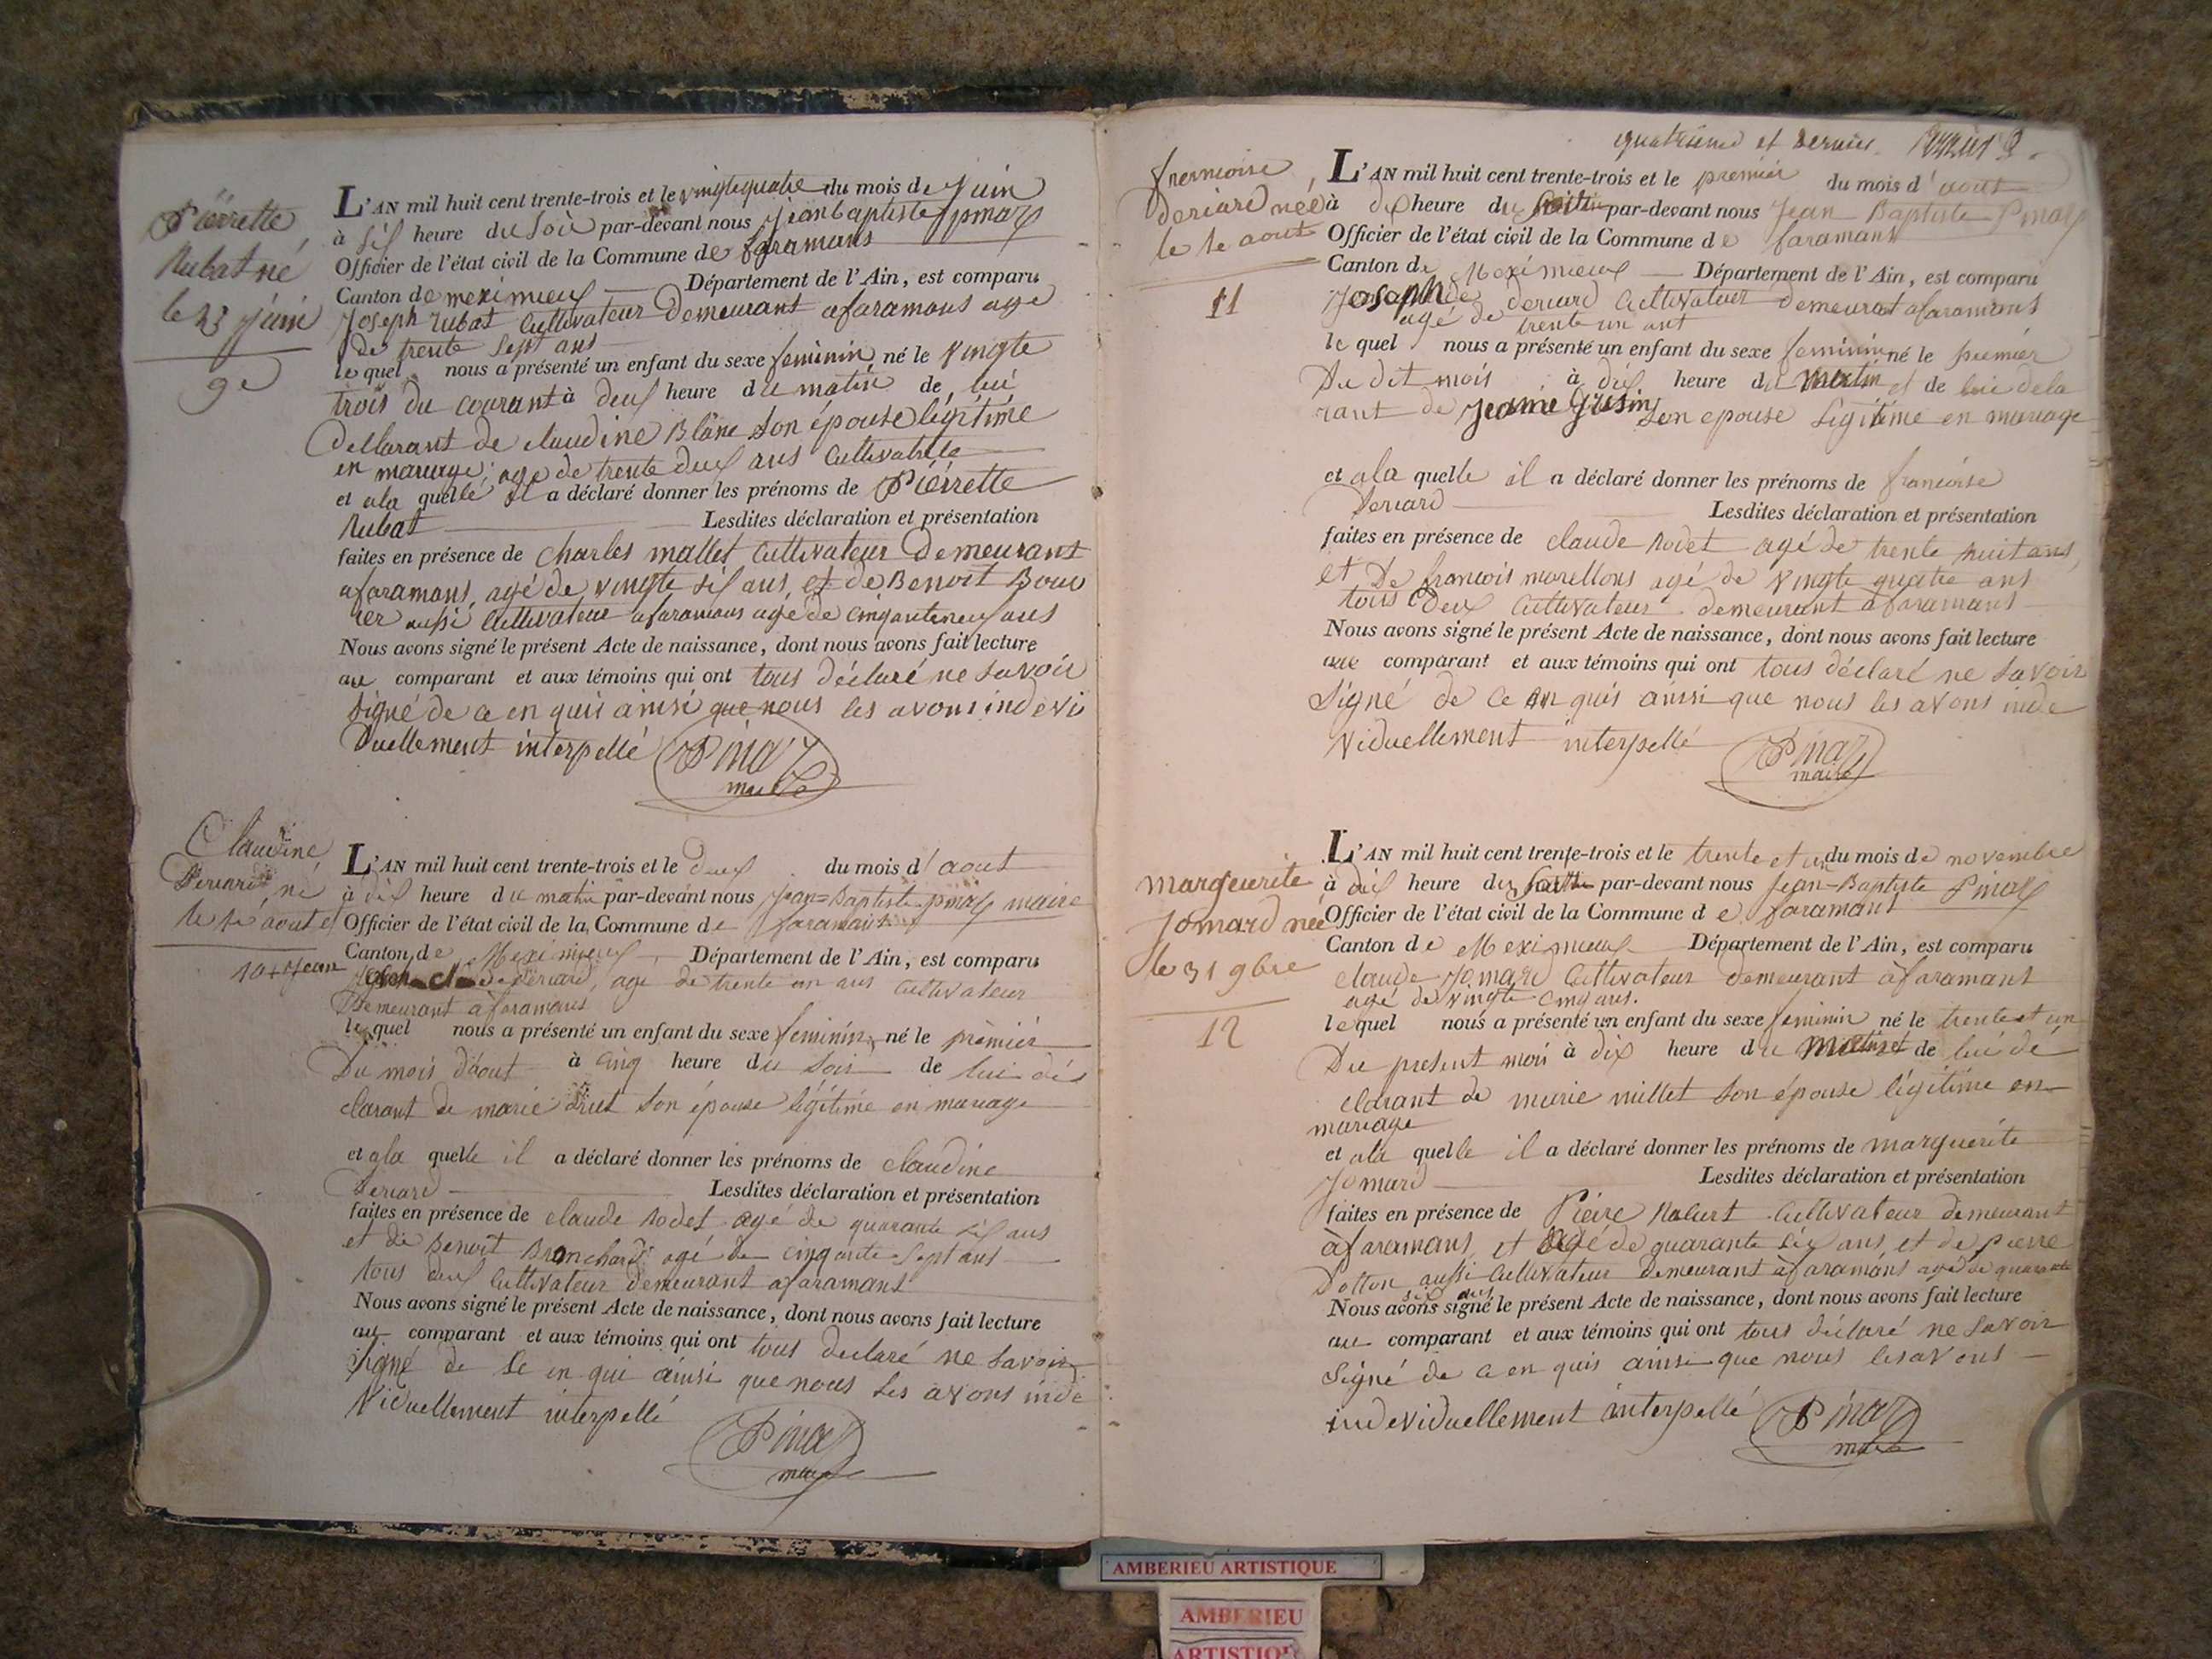 Pierrette
Rubat né
le 23 juin
9e
L'AN mil huit cent trente-trois et le vingtequatre du mois de Juin
à sis heure du soir par-devant nous Jean baptiste pinaz
Officier de l'état civil de la Commune de faramans
Canton de meximieux Département de l'Ain, est comparu
Joseph rubat Cultivateur Demeurant afaramans age
de trente Sept ans
le quel nous a présenté un enfant du sexe feminin né le vingte
trois du courant à deux heure du matin de lui
declarant de claudine Blanc son épouse légitime
en mariage; age de trente deux ans Cultivatrice
et ala quelle il a déclaré donner les prénoms de Pierrette
Rubat Lesdites déclaration et présentation
faites en présence de charles mallet Cultivateur Demeurant
afaramans, agé de vingte sis ans, et de Benoit Bou
ier aussi Cultivateur afaramans age de cinqante ans
Nous avons signé le présent Acte de naissance, dont nous avons fait lecture
au comparant et aux témoins qui ont tous déclaré ne savoir
signé de ce en quis ainsi que nous les avons indevi
duellement interpellé Pinaz
maire
Claudine
Deriard né
le 1e aoute
10
L'AN mil huit cent trente-trois et le deux du mois d'aout
à dix heure du matin par-devant nous Jean=Baptiste pinaz maire
Officier de l'état civil de la Commune de faramans
Canton de Meximieux Département de l'Ain, est comparu
Deriard, age de trente un ans cultivateur
Demeurant à faramans
le quel nous a présenté un enfant du sexe feminin, né le premier
Du mois d'aout à cinq heure du soir de lui dé
clarant de marie son épouse légitime en mariage
et ala quelle il a déclaré donner les prénoms de claudine
Deriard Lesdites déclaration et présentation
faites en présence de claude Rodet agé de quarante sis ans
et de benoit Branchard agé de cinqante sept ans
tous deux Cultivateur demeurant afaramans
Nous avons signé le présent Acte de naissance, dont nous avons fait lecture
au comparant et aux témoins qui ont tous declaré ne savoir
signé de se en qui ainsi que nous les avons inde
viduellement interpellé
Pinaz
maire
quatrieme et dernier
francoise
Deriard née
le 1e aout
11
L'AN mil huit cent trente-trois et le premier du mois d'aout
à dix heure du par-devant nous Jean Baptiste Pinaz
Officier de l'état civil de la Commune de faramans
Canton de Meximieux Département de l'Ain, est comparu
Joseph deriard Cultivateur demeurat afaramans
agé de trente un ant
le quel nous a présenté un enfant du sexe feminin né le premier
Du dit mois à dix heure du matin et de lui dela
rant de Jeanne son epouse Légitime en mariage
et ala quelle il a déclaré donner les prénoms de francoise
Deriard Lesdites déclaration et présentation
faites en présence de claude Rodet agé de trente huit ans,
et De francois morellons agé de vingte quatre ans
tous deux Cultivateur demeurant afaramans
Nous avons signé le présent Acte de naissance, dont nous avons fait lecture
au comparant et aux témoins qui ont tous déclaré ne savoir
Signé de ce en quis ainsi que nous les avons inde
viduellement interpellé Pinaz
maire
marguerite
Jomard née
le 31 9bre
12
L'AN mil huit cent trente-trois et le trente et un du mois de novembre
à dix heure du par-devant nous Jean-Baptiste Pinaz
Officier de l'état civil de la Commune de faramans
Canton de Meximieux Département de l'Ain, est comparu
claude Jomard Cultivateur demeurant afaramans
agé de vingte cinq ans.
le quel nous a présenté un enfant du sexe feminin né le trente et un
Du present mois à dix heure du matin et de lui dé
clarant de marie millet son épouse légitime en
mariage
et ala quelle il a déclaré donner les prénoms de marguerite
Jomard Lesdites déclaration et présentation
faites en présence de Pierre Cultivateur demeurant
afaramans, et agé de quarante six ans, et de pierre
Dotton aussi Cultivateur Demeurant afaramans agé de quarante
six ans
Nous avons signé le présent Acte de naissance, dont nous avons fait lecture
au comparant et aux témoins qui ont tous déclaré ne savoir
signé de ce en quis ainsi que nous les avons
indeviduellement interpellé Pinaz
maire
AMBERIEU ARTISTIQUE
AMBERIEU